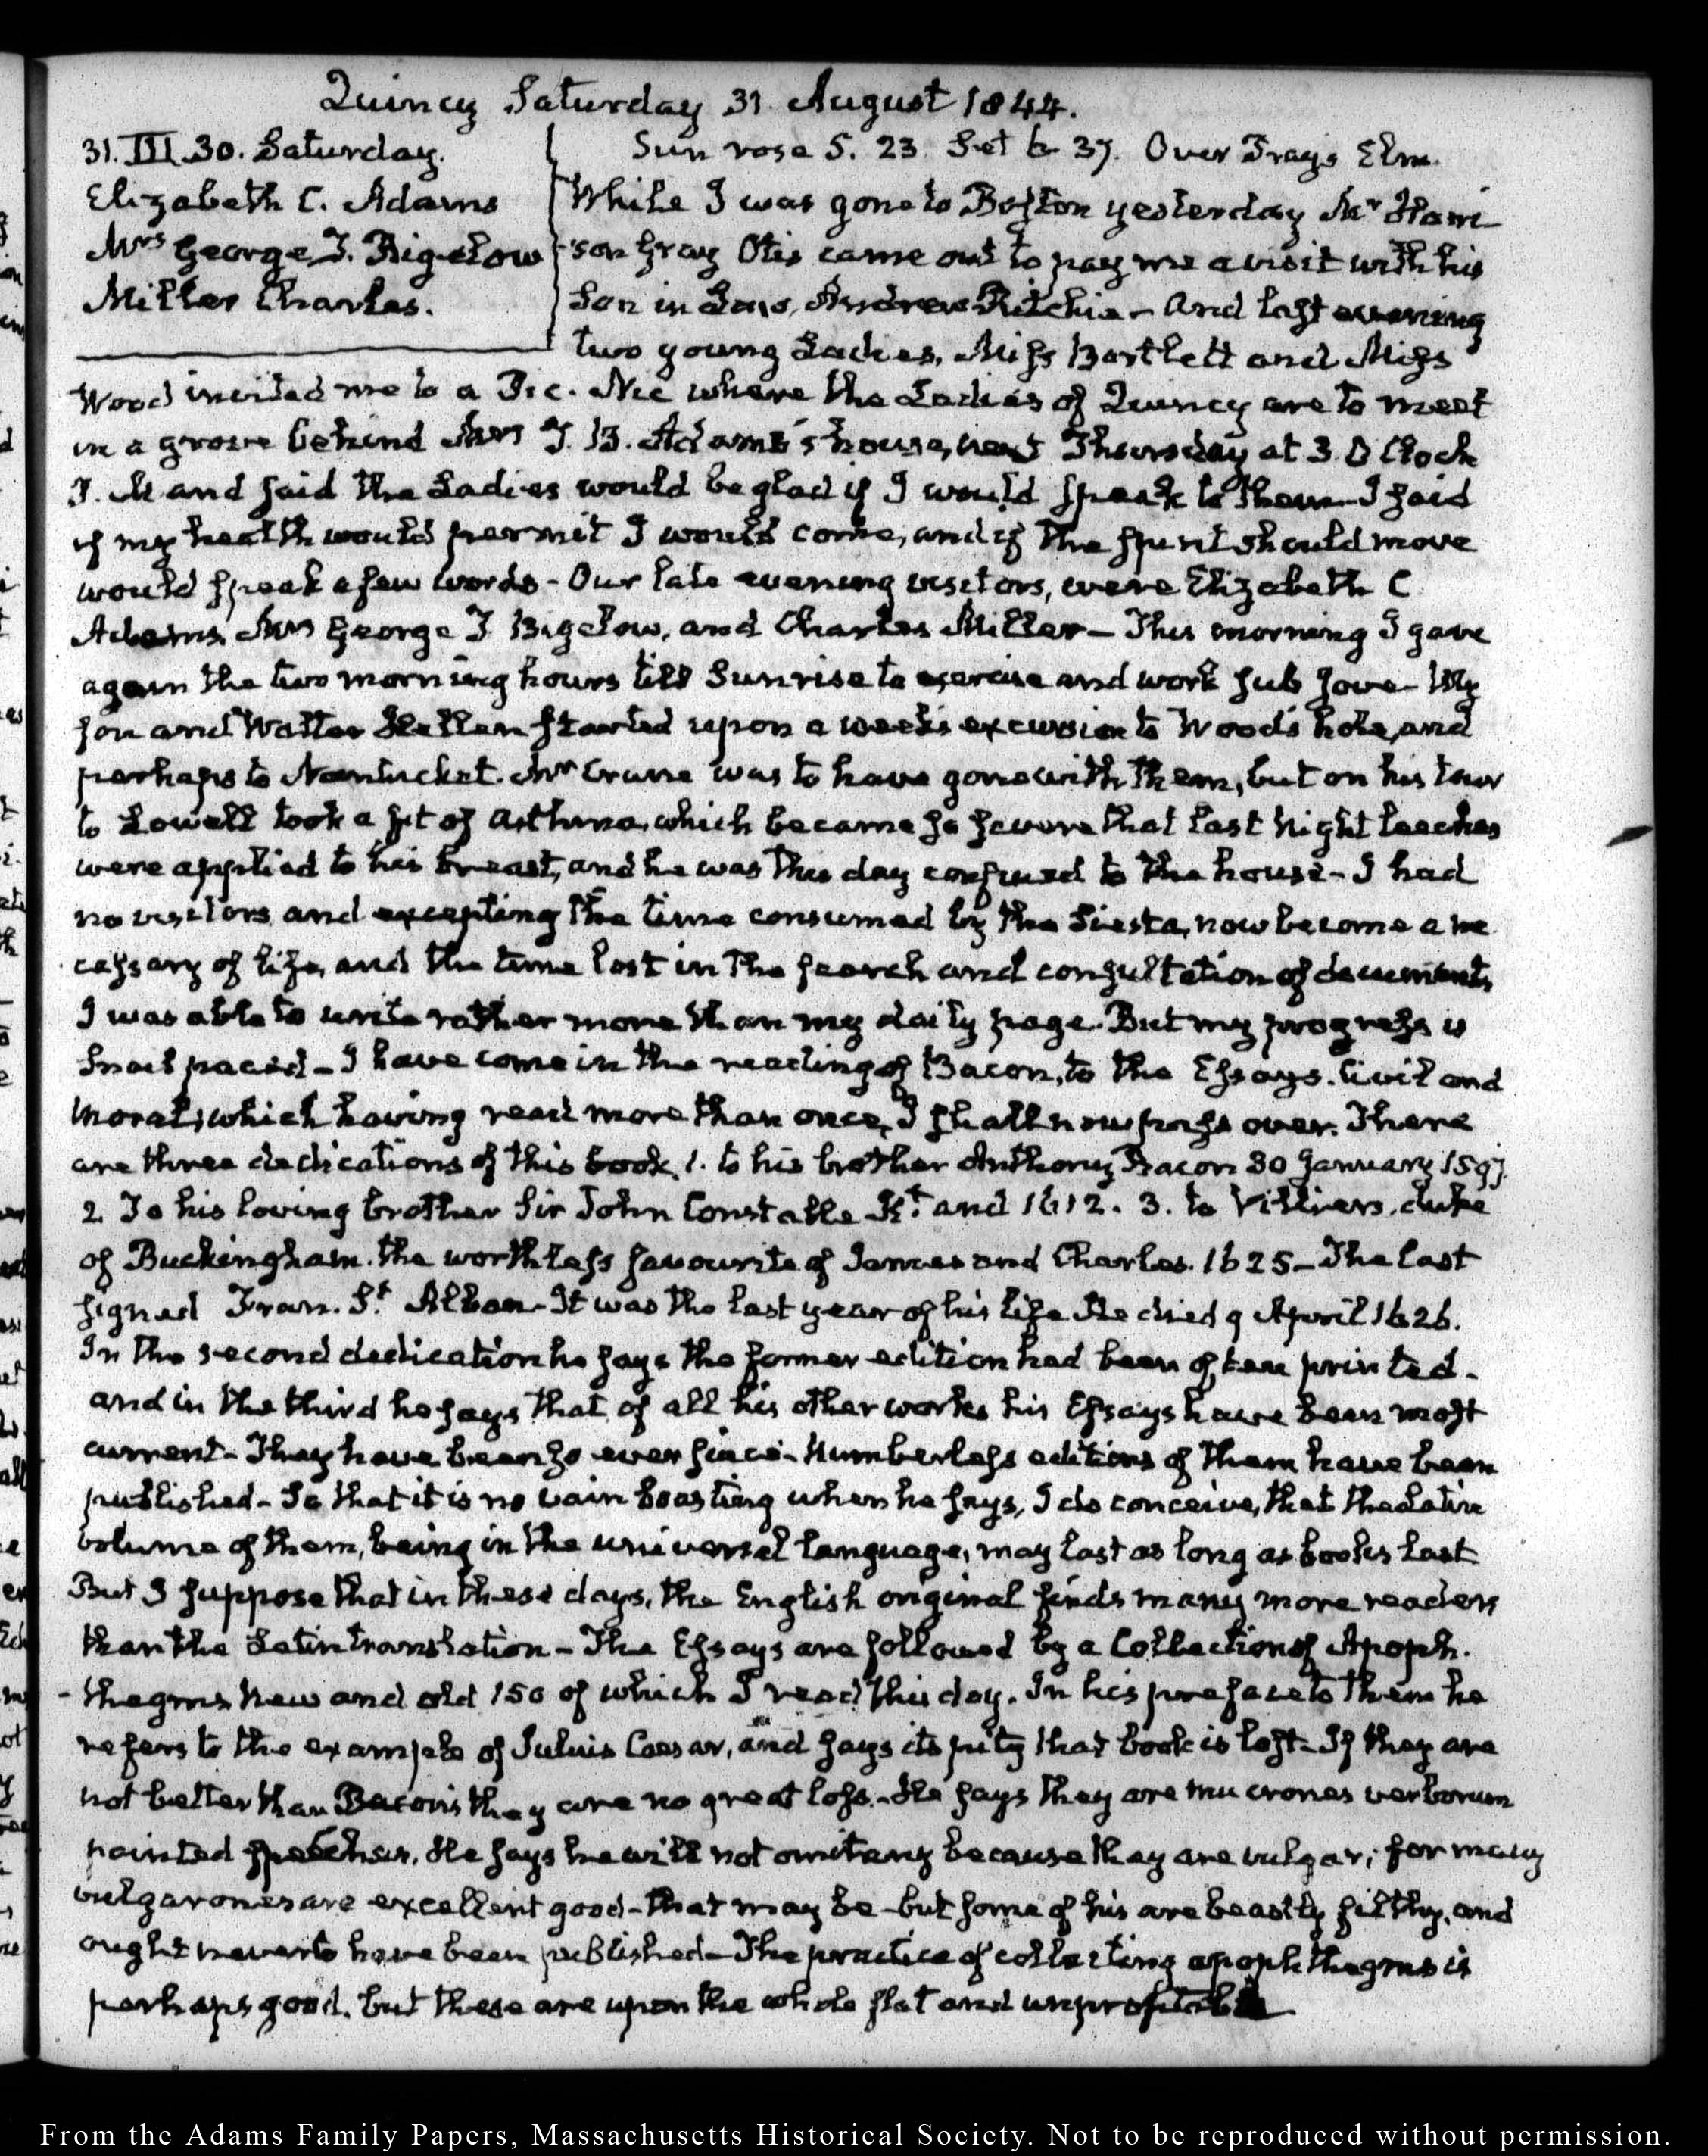 Quincy Saturday 31. August 1844.
31. III. 30. Saturday.
Elizabeth C. Adams
Mrs George T. Bigelow
Miller Charles.
Sun rose 5. 23. Set 6. 37. Over Elm.
While I was gone to Boston yesterday Mr Harri-
son Gray Otis came out to pay me a visit with his
Son in Law, Andrew Ritchie - And last evening
two young Ladies, Miss Bartlett and Miss
Wood invited me to a Pic. Nic where the Ladies of Quincy are to meet
in a grove behind Mrs T. B. Adams's house, next Thursday at 3. O Clock
P. M and said the Ladies would be glad if I would speak to them - I said
if my health would permit I would come, and if the spirit should move
would speak a few words - Our late evening visitors, were Elizabeth C.
Adams, Mrs George T Bigelow, and Charles Miller - This morning I gave
again the two morning hours till Sunrise to exercise and work sub Jove - My
son and Walter Hellen started upon a week's excursion to Wood's hole, and
perhaps to Nantucket. Mr Crane was to have gone with them, but on his tour
to Lowell took a fit of Asthma, which became so severe that last Night leeches
were applied to his breast, and he was this day confined to the house - I had
no visitors and excepting the time consumed by the Siesta, now become a ne
cessary of life, and the time lost in the search and consultation of documents,
I was able to write rather more than my daily page. But my progress is
Snail paced - I have come in the reading of Bacon, to the Essays. Civil and
Moral; which having read more than once, I shall now pass over. There
are three dedications of this book, 1. to his brother Anthony Bacon 30 January 1597.
2. To his loving brother Sir John Constable Kt. and 1612. 3. to Villiers, duke
of Buckingham. the worthless favourite of James and Charles. 1625 - The last
signed Fran. St. Alban - It was the last year of his life He died 9 April 1626.
In the second dedication he says the former edition had been often printed -
and in the third he says that of all his other works his Essays have been most
current - They have been so ever since - Numberless editions of them have been
published - So that it is no vain boasting when he says, I do conceive, that the Latin
volume of them, being in the universal language, may last as long as books last
But I suppose that in these days, the English original finds many more readers
than the Latin translation - The Essays are followed by a Collection of Apoph-
-thegms New and old 150 of which I read this day. In his preface to them he
refers to the example of Julius Caesar, and says its pity that book is lost - If they are
not better than Bacon's they are no great loss. - He says they are mucrones verborum
pointed speeches. He says he will not omit any because they are vulgar; for many
vulgar ones are excellent good - that may be - but some of his are beastly filthy, and
ought never to have been published - The practice of collecting apophthegms is
perhaps good. but these are upon the whole flat and unprofitable
From the Adams Family Papers, Massachusetts Historical Society. Not to be reproduced without permission.